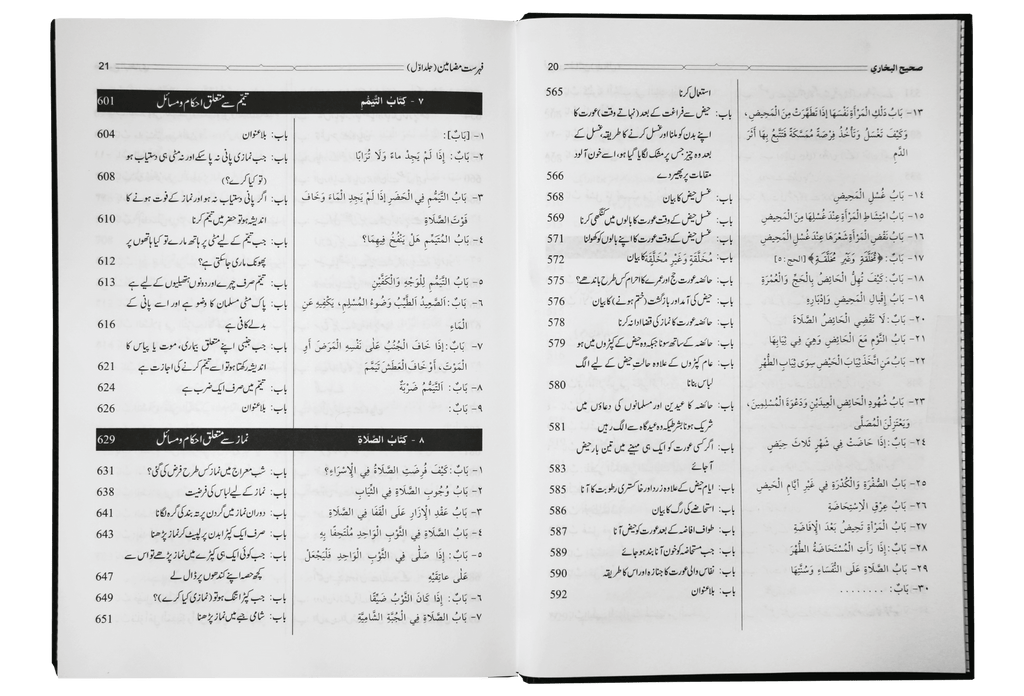 صحيح البخاري 20
١٣- بَابُ دَلْكِ الْمَرْأَةِ نَفْسَهَا إِذَا تَطَهَّرَتْ مِنَ الْمَحِيضِ،
وَكَيْفَ تَغْتَسِلُ وَتَأْخُذُ فِرْصَةً مُمَسَّكَةً فَتَتَّبِعُ بِهَا أَثَرَ
الدَّمِ
١٤- بَابُ غُسْلِ الْمَحِيضِ
١٥- بَابُ امْتِشَاطِ الْمَرْأَةِ عِنْدَ غُسْلِهَا مِنَ الْمَحِيضِ
١٦- بَابُ نَقْضِ الْمَرْأَةِ شَعْرَهَا عِنْدَ غُسْلِ الْمَحِيضِ
١٧- بَابٌ: ﴿مُخَلَّقَةٍ وَغَيْرِ مُخَلَّقَةٍ﴾ [الحج: ٥]
١٨- بَابٌ: كَيْفَ تُهِلُّ الْحَائِضُ بِالْحَجِّ وَالْعُمْرَةِ
١٩- بَابُ إِقْبَالِ الْمَحِيضِ وَإِدْبَارِهِ
٢٠- بَابٌ: لَا تَقْضِي الْحَائِضُ الصَّلَاةَ
٢١- بَابُ النَّوْمِ مَعَ الْحَائِضِ وَهِيَ فِي ثِيَابِهَا
٢٢- بَابُ مَنِ اتَّخَذَ ثِيَابَ الْحَيْضِ سِوَى ثِيَابِ الطُّهْرِ
٢٣- بَابُ شُهُودِ الْحَائِضِ الْعِيدَيْنِ وَدَعْوَةَ الْمُسْلِمِينَ،
وَيَعْتَزِلْنَ الْمُصَلَّى
٢٤- بَابٌ: إِذَا حَاضَتْ فِي شَهْرٍ ثَلَاثَ حِيَضٍ
٢٥- بَابُ الصُّفْرَةِ وَالْكُدْرَةِ فِي غَيْرِ أَيَّامِ الْحَيْضِ
٢٦- بَابُ عِرْقِ الْاِسْتِحَاضَةِ
٢٧- بَابُ الْمَرْأَةِ تَحِيضُ بَعْدَ الْإِفَاضَةِ
٢٨- بَابٌ: إِذَا رَأَتِ الْمُسْتَحَاضَةُ الطُّهْرَ
٢٩- بَابُ الصَّلَاةِ عَلَى النُّفَسَاءِ وَسُنَّتِهَا
٣٠- بَابٌ: ........
استعمال کرنا 565
باب: حیض سے فراغت کے بعد (نہاتے وقت) عورت کا
اپنے بدن کو ملنا اور غسل کرنے کا طریقہ، غسل کے
بعد وہ چیز جس پر مشک لگایا گیا ہو، اسے خون آلود
مقامات پر پھیر دے 566
باب: غسل حیض کا بیان 568
باب: غسل حیض کے وقت عورت کا بالوں میں کنگھی کرنا 569
باب: غسل حیض کے وقت عورت کا اپنے بالوں کو کھولنا 571
باب: مُخَلَّقَةٍ وَغَيْرِ مُخَلَّقَةٍ کا بیان 572
باب: حائضہ عورت حج اور عمرے کا احرام کس طرح باندھے؟ 575
باب: حیض کی آمد اور بازگشت (ختم ہونے) کا بیان 576
باب: حائضہ عورت کا نماز کی قضا ادا نہ کرنا 578
باب: حائضہ کے ساتھ سونا جبکہ وہ حیض کے کپڑوں میں ہو 579
باب: عام کپڑوں کے علاوہ حالت حیض کے لیے الگ
لباس بنانا 580
باب: حائضہ کا عیدین اور مسلمانوں کی دعاؤں میں
شریک ہونا بشرطیکہ وہ عیدگاہ سے الگ رہیں 581
باب: اگر کسی عورت کو ایک ہی مہینے میں تین بار حیض
آ جائے 583
باب: ایام حیض کے علاوہ زرد اور خاکستری رطوبت کا آنا 585
باب: استحاضے کی رگ کا بیان 586
باب: طواف افاضہ کے بعد عورت کو حیض آنا 587
باب: جب مستحاضہ کو خون آنا بند ہو جائے 589
باب: نفاس والی عورت کا جنازہ اور اس کا طریقہ 590
باب: بلا عنوان 592
فہرست مضامین (جلد اول) 21
٧- كتابُ التَّيَمُّم تیمّم سے متعلق احکام و مسائل 601
١- [بَابٌ]:
٢- بَابٌ: إِذَا لَمْ يَجِدْ مَاءً وَلَا تُرَابًا
٣- بَابُ التَّيَمُّمِ فِي الْحَضَرِ إِذَا لَمْ يَجِدِ الْمَاءَ وَخَافَ
فَوْتَ الصَّلَاةِ
٤- بَابٌ: الْمُتَيَمِّمُ هَلْ يَنْفُخُ فِيهِمَا؟
٥- بَابُ التَّيَمُّمِ لِلْوَجْهِ وَالْكَفَّيْنِ
٦- بَابٌ: الصَّعِيدُ الطَّيِّبُ وَضُوءُ الْمُسْلِمِ، يَكْفِيهِ عَنِ
الْمَاءِ
٧- بَابٌ: إِذَا خَافَ الْجُنُبُ عَلَى نَفْسِهِ الْمَرَضَ أَوِ
الْمَوْتَ، أَوْ خَافَ الْعَطَشَ تَيَمَّمَ
٨- بَابٌ: اَلتَّيَمُّمُ ضَرْبَةٌ
٩- بَابٌ:
باب: بلا عنوان 604
باب: جب نمازی پانی نہ پا سکے اور نہ مٹی ہی دستیاب ہو
(تو کیا کرے؟) 608
باب: اگر پانی دستیاب نہ ہو اور نماز کے فوت ہونے کا
اندیشہ ہو تو حضر میں تیمّم کرنا 610
باب: جب تیمّم کے لیے مٹی پر ہاتھ مارے تو کیا ہاتھوں پر
پھونک ماری جا سکتی ہے؟ 612
باب: تیمّم صرف چہرے اور دونوں ہتھیلیوں کے لیے ہے 613
باب: پاک مٹی مسلمان کا وضو ہے اور اسے پانی کے
بدلے کافی ہے 616
باب: جب جنبی اپنے متعلق بیماری، موت یا پیاس کا
اندیشہ رکھتا ہو تو اسے تیمّم کرنے کی اجازت ہے 621
باب: تیمّم میں صرف ایک ضرب ہے 624
باب: بلا عنوان 626
٨- كتابُ الصَّلاة نماز سے متعلق احکام و مسائل 629
١- بَابٌ: كَيْفَ فُرِضَتِ الصَّلَاةُ فِي الْإِسْرَاءِ؟
٢- بَابُ وُجُوبِ الصَّلَاةِ فِي الثِّيَابِ
٣- بَابُ عَقْدِ الْإِزَارِ عَلَى الْقَفَا فِي الصَّلَاةِ
٤- بَابُ الصَّلَاةِ فِي الثَّوْبِ الْوَاحِدِ مُلْتَحِفًا بِهِ
٥- بَابٌ: إِذَا صَلَّى فِي الثَّوْبِ الْوَاحِدِ فَلْيَجْعَلْ
عَلَى عَاتِقَيْهِ
٦- بَابٌ: إِذَا كَانَ الثَّوْبُ ضَيِّقًا
٧- بَابُ الصَّلَاةِ فِي الْجُبَّةِ الشَّامِيَّةِ
باب: شب معراج میں نماز کس طرح فرض کی گئی؟ 631
باب: نماز کے لیے لباس کی فرضیت 638
باب: دوران نماز میں گردن پر تہ بند کی گرہ لگانا 641
باب: صرف ایک کپڑا بدن پر لپیٹ کر نماز پڑھنا 643
باب: جب کوئی ایک ہی کپڑے میں نماز پڑھے تو اس سے
کچھ حصہ اپنے کندھوں پر ڈال لے 647
باب: جب کپڑا تنگ ہو تو (نمازی کیا کرے)؟ 649
باب: شامی جبے میں نماز پڑھنا 651